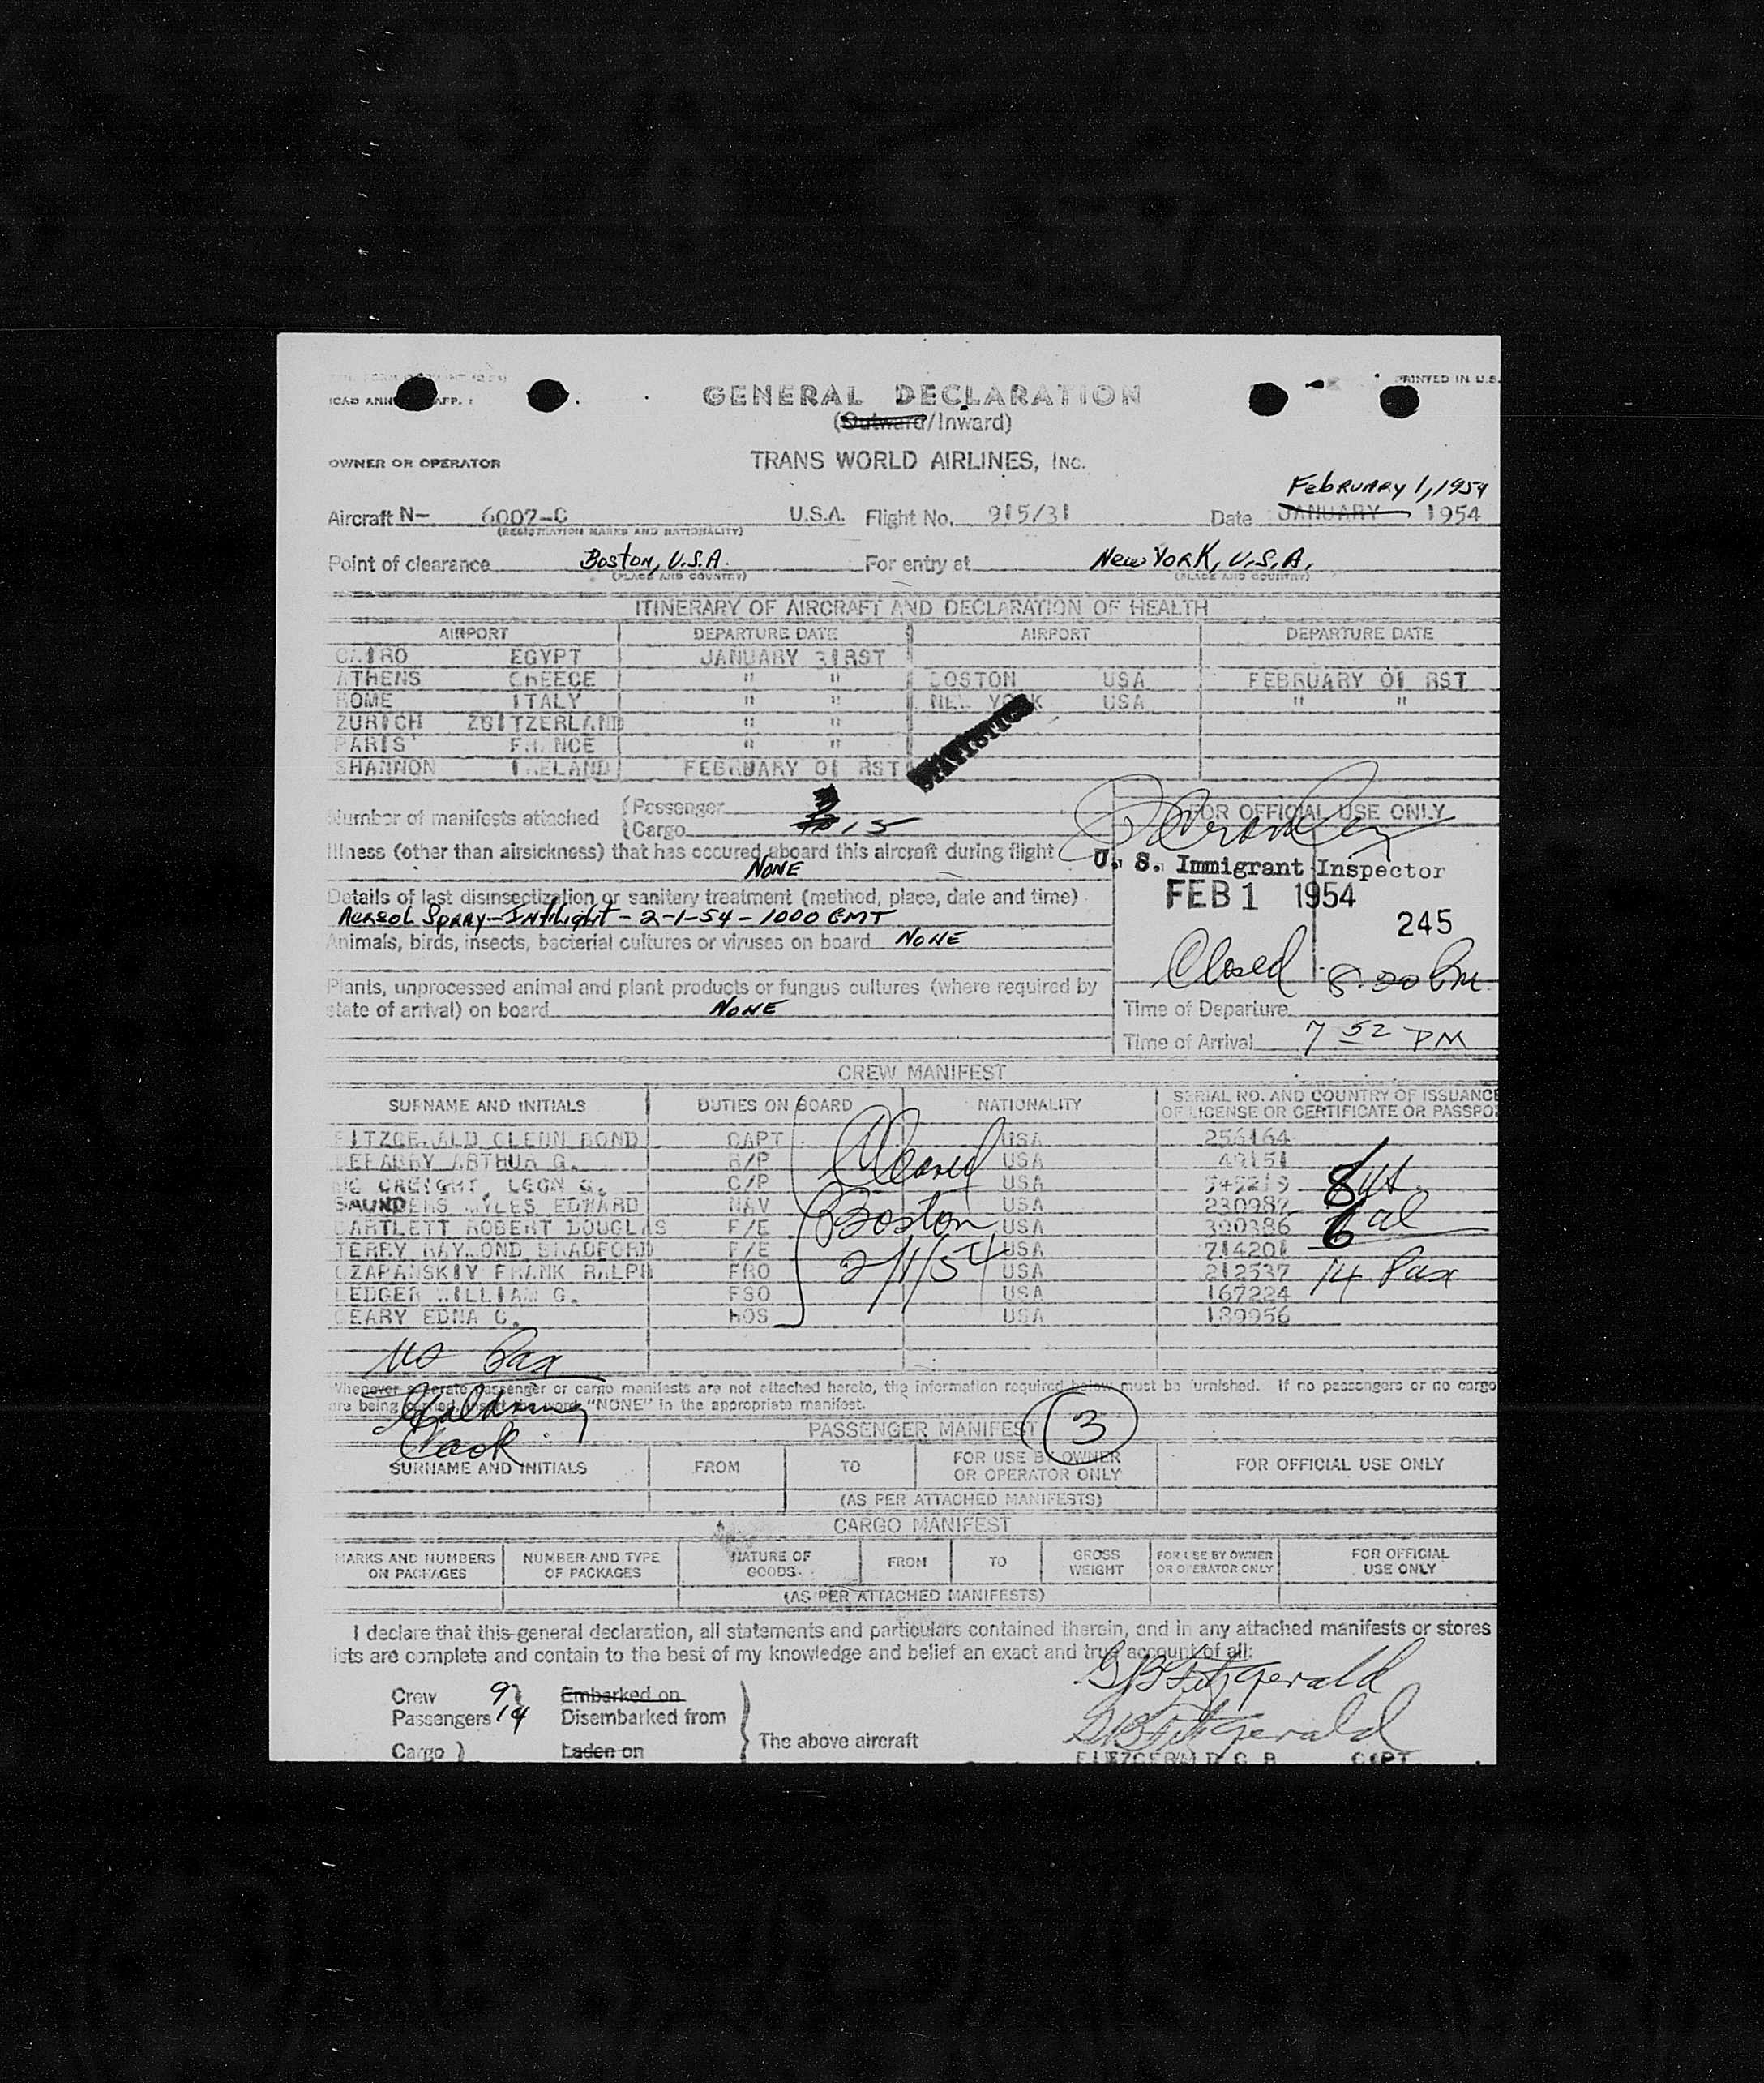 ICAO ANN APP.
PRINTED IN U.S.
GENERAL DECLARATION
(Outward/Inward)
OWNER OR OPERATOR
TRANS WORLD AIRLINES, INC.
February 1, 1954
Aircraft N- 6007-C U.S.A. Flight No. 915/31 Date JANUARY 1954
(REGISTRATION MARKS AND NATIONALITY)
Point of clearance Boston, U.S.A. For entry at New York, U.S.A.
(PLACE AND COUNTRY) (PLACE AND COUNTRY)
ITINERARY OF AIRCRAFT AND DECLARATION OF HEALTH
AIRPORT DEPARTURE DATE AIRPORT DEPARTURE DATE
CAIRO EGYPT JANUARY 31RST
ATHENS GREECE " " BOSTON USA FEBRUARY 01 RST
ROME ITALY " " NEW YORK USA " "
ZURICH ZWITZERLAND " "
PARIS FRANCE " "
SHANNON IRELAND FEBRUARY 01 RST
STATISTICS
Number of manifests attached (Passenger
(Cargo 15
FOR OFFICIAL USE ONLY
Illness (other than airsickness) that has occured aboard this aircraft during flight
NONE
U. S. Immigrant Inspector
FEB 1 1954
245
Details of last disinsectization or sanitary treatment (method, place, date and time)
Aersol Spray-Inflight - 2-1-54 - 1000 GMT
Animals, birds, insects, bacterial cultures or viruses on board NONE
Closed 8:30 Pm
Plants, unprocessed animal and plant products or fungus cultures (where required by
state of arrival) on board NONE
Time of Departure
Time of Arrival 7 52 PM
CREW MANIFEST
SURNAME AND INITIALS DUTIES ON BOARD NATIONALITY SERIAL NO. AND COUNTRY OF ISSUANCE
OF LICENSE OR CERTIFICATE OR PASSPO
FITZGERALD GLENN BOND CAPT USA 256164
ARTHUR G. USA 49151
MC CREIGHT, LEON G. C/P USA
SAUNDERS MYLES EDWARD NAV USA 230987
BARTLETT ROBERT DOUGLAS F/E USA 300386
TERRY RAYMOND BRADFORD F/E USA 714201
CZAPANSKIY FRANK RALPH FRO USA 212537
LEDGER WILLIAM G. FSO USA 167224
GEARY EDNA C. HOS USA 189956
Cleared
Boston
2/1/54
8 us
6 al
14 Pax
no Pax
Whenever separate passenger or cargo manifests are not attached hereto, the information required below must be furnished. If no passengers or no cargo
are being carried, insert the word "NONE" in the appropriate manifest.
PASSENGER MANIFEST
3
SURNAME AND INITIALS FROM TO FOR USE BY OWNER OR OPERATOR ONLY FOR OFFICIAL USE ONLY
(AS PER ATTACHED MANIFESTS)
CARGO MANIFEST
MARKS AND NUMBERS ON PACKAGES NUMBER AND TYPE OF PACKAGES NATURE OF GOODS FROM TO GROSS WEIGHT FOR USE BY OWNER OR OPERATOR ONLY FOR OFFICIAL USE ONLY
(AS PER ATTACHED MANIFESTS)
I declare that this general declaration, all statements and particulars contained therein, and in any attached manifests or stores
ists are complete and contain to the best of my knowledge and belief an exact and true account of all:
G B Fitzgerald
Crew 9 Embarked on
Passengers 14 Disembarked from
G B Fitzgerald
Cargo Laden on The above aircraft
FITZGERALD G B CAPT